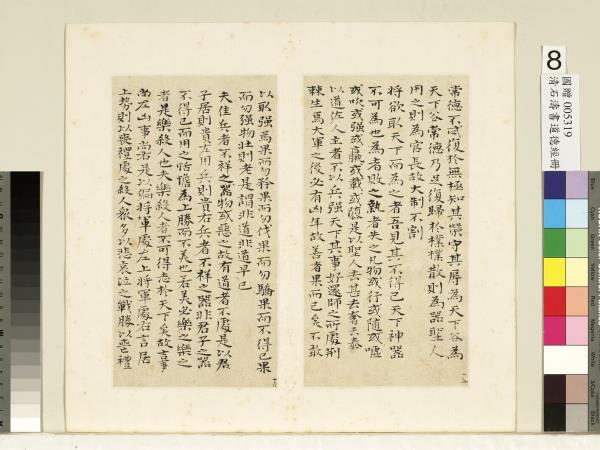 常德不忒復於無極知其榮守其辱為天下谷為
天下谷常德乃足復歸於樸樸散則為器聖人
用之則為官長故大制不割
將欲取天下而為之者吾見其不得已天下神器
不可為也為者敗之執者失之凡物或行或隨或噓
或吹或强或羸或載或隳是以聖人去甚去奢去泰
以道佐人主者不以兵强天下其事好還師之所處荆
棘生焉大軍之後必有凶年故善者果而已矣不敢
以取强焉果而勿矜果而勿伐果而勿驕果而不得已果
而勿强物壯則老是謂非道非道早已
夫佳兵者不祥之器物或惡之故有道者不處是以君
子居則貴左用兵則貴右兵者不祥之器非君子之器
不得已而用之恬憺為上勝而不美也若美必樂之樂之
者是樂殺人也夫樂殺人者不可得志於天下矣故吉事
尚左凶事尚右是以偏將軍處左上將軍處右言居
上勢則以喪禮處之殺人衆多以悲哀泣之戰勝以喪禮
8
國贈 005319
清石濤書道德經冊
Blue
Cyan
Green
Yellow
Red
Magenta
White
3/Color
Black